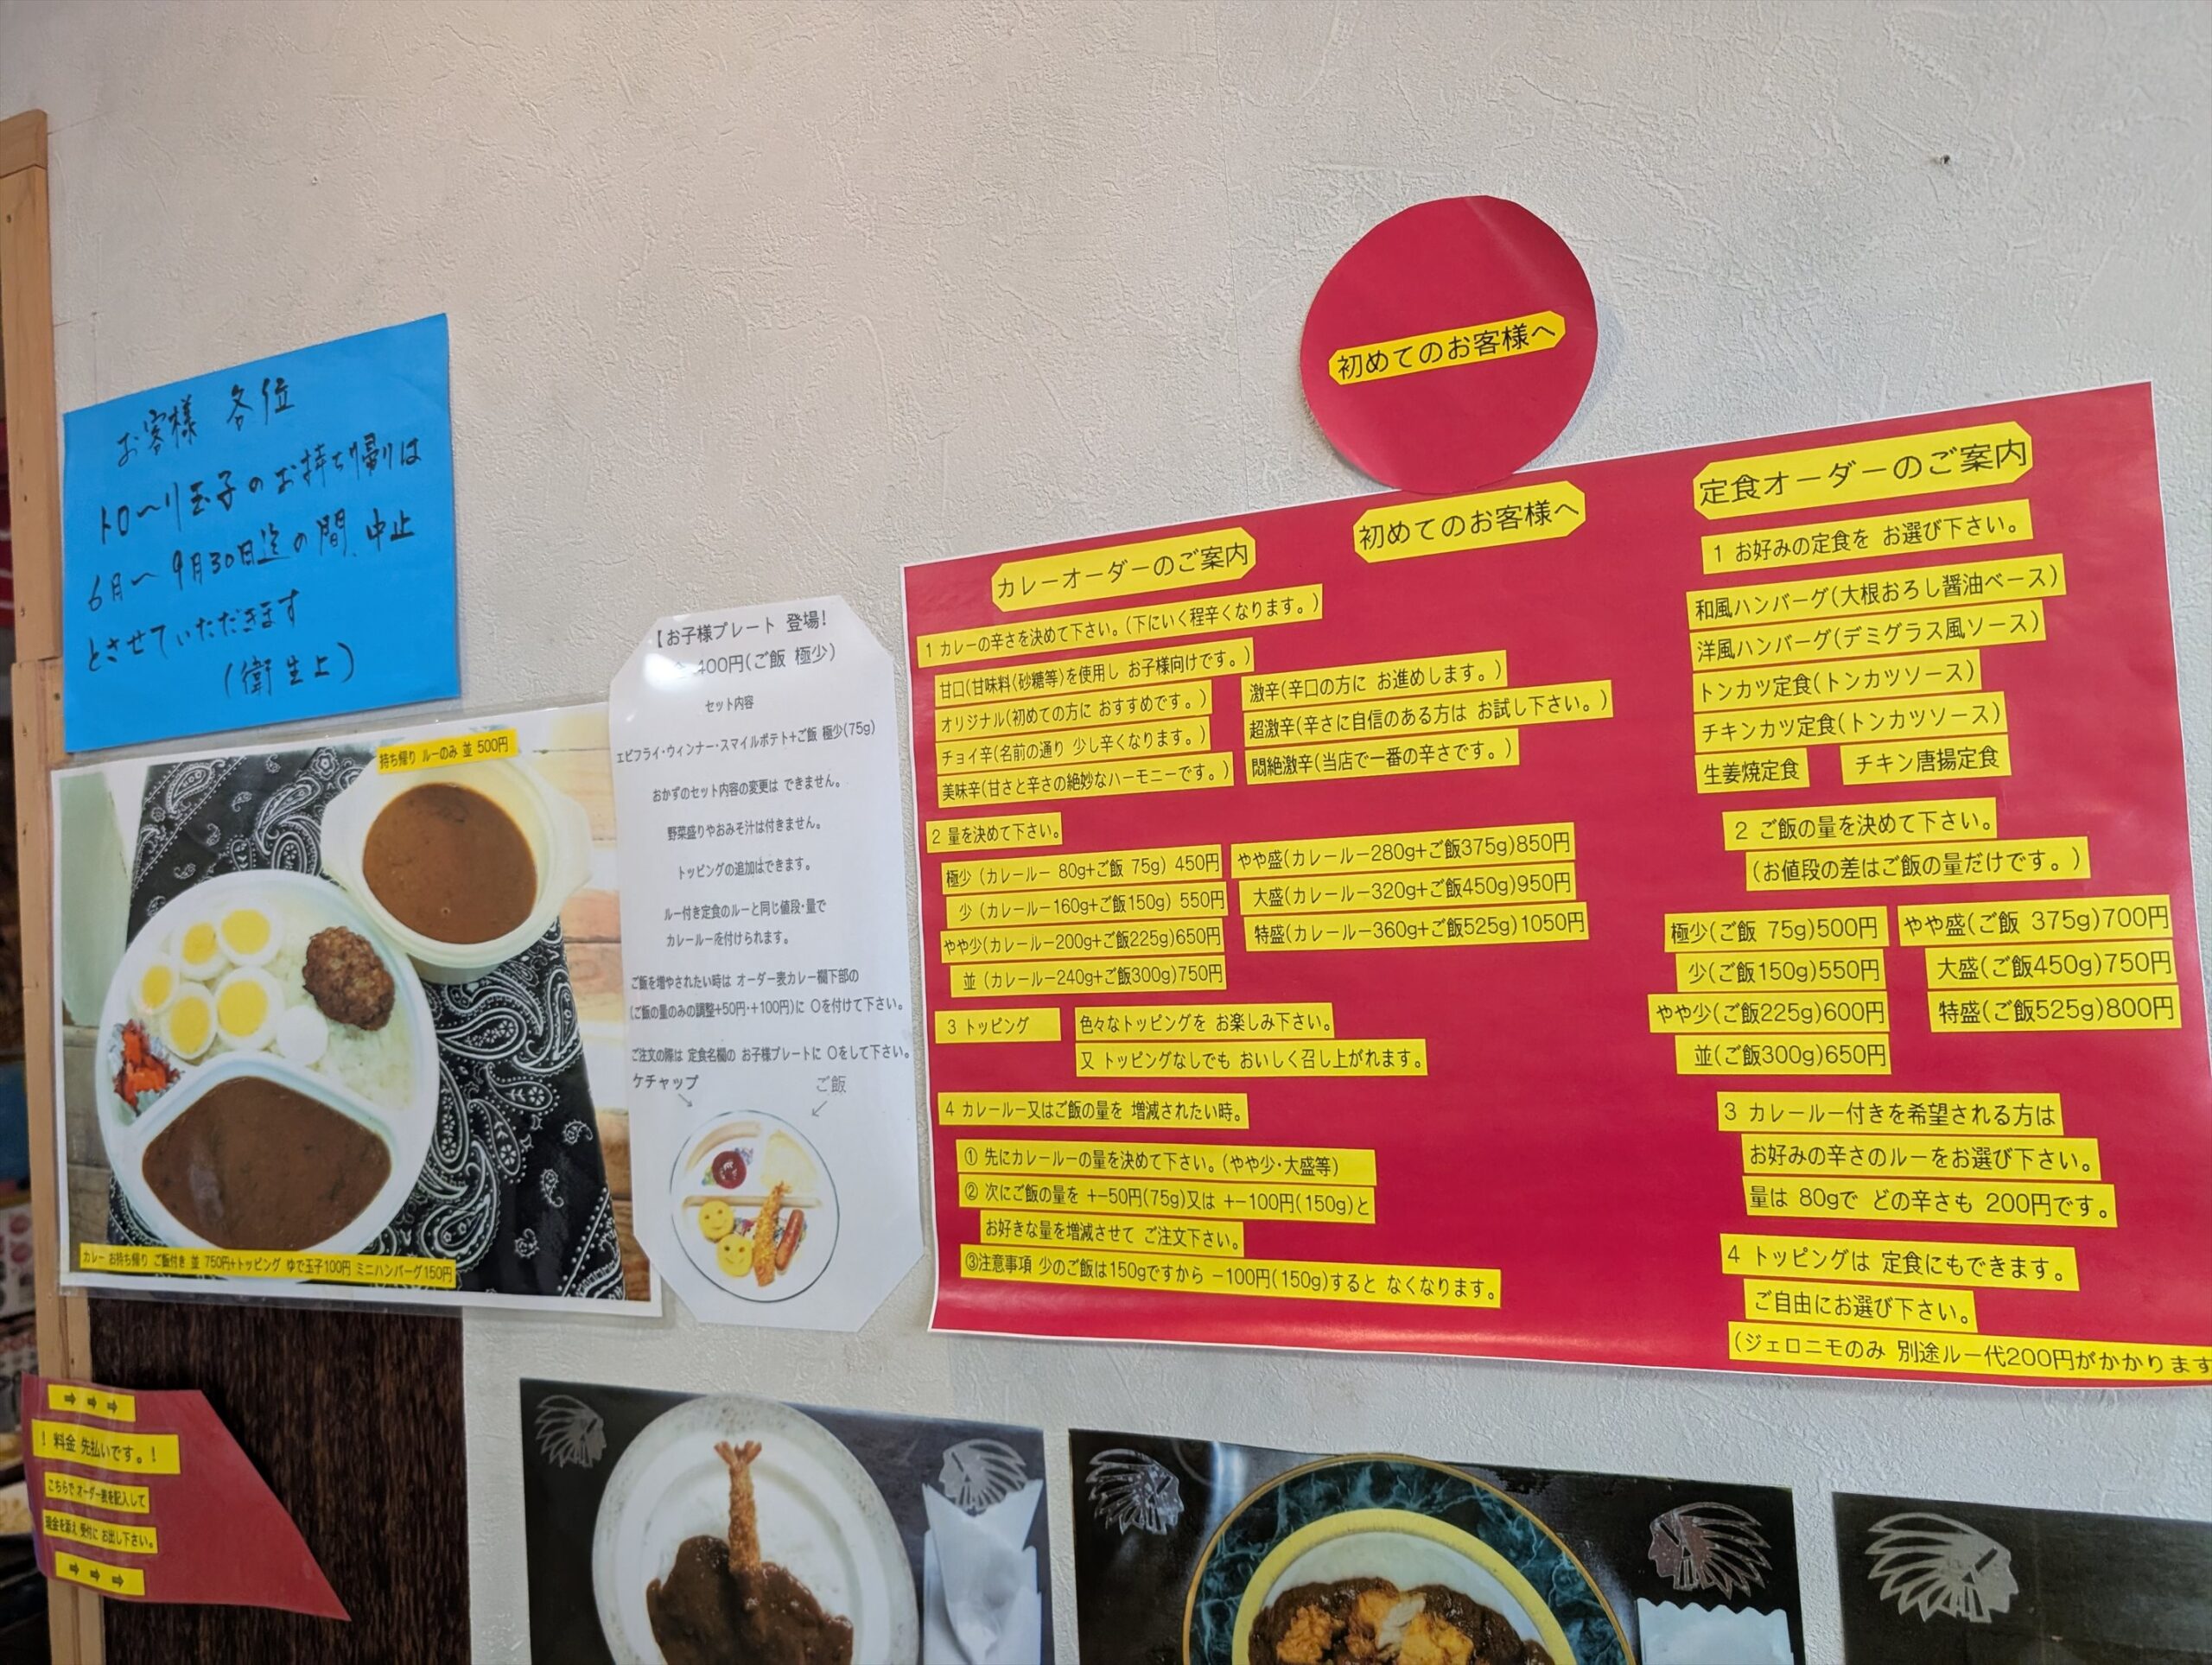 お客様 各位
トロ〜リ玉子のお持ち帰りは
6月〜9月30日迄の間、中止
とさせていただきます
(衛生上)
持ち帰り ルーのみ 並 500円
カレー お持ち帰り ご飯付き 並 750円+トッピング ゆで玉子100円 ミニハンバーグ150円
【お子様プレート 登場!
400円(ご飯 極少)
セット内容
エビフライ・ウィンナー・スマイルポテト+ご飯 極少(75g)
おかずのセット内容の変更は できません。
野菜盛りやおみそ汁は付きません。
トッピングの追加はできます。
ルー付き定食のルーと同じ値段・量で
カレールーを付けられます。
ご飯を増やされたい時は オーダー表カレー欄下部の
(ご飯の量のみの調整+50円・+100円)に 〇を付けて下さい。
ご注文の際は 定食名欄の お子様プレートに 〇をして下さい。
ケチャップ
ご飯
初めてのお客様へ
初めてのお客様へ
カレーオーダーのご案内
1 カレーの辛さを決めて下さい。(下にいく程辛くなります。)
甘口(甘味料(砂糖等)を使用し お子様向けです。)
オリジナル(初めての方に おすすめです。)
チョイ辛(名前の通り 少し辛くなります。)
美味辛(甘さと辛さの絶妙なハーモニーです。)
激辛(辛口の方に お進めします。)
超激辛(辛さに自信のある方は お試し下さい。)
悶絶激辛(当店で一番の辛さです。)
2 量を決めて下さい。
極少 (カレールー 80g+ご飯 75g) 450円
少 (カレールー160g+ご飯150g) 550円
やや少(カレールー200g+ご飯225g)650円
並 (カレールー240g+ご飯300g)750円
やや盛(カレールー280g+ご飯375g)850円
大盛(カレールー320g+ご飯450g)950円
特盛(カレールー360g+ご飯525g)1050円
3 トッピング
色々なトッピングを お楽しみ下さい。
又 トッピングなしでも おいしく召し上がれます。
4 カレールー又はご飯の量を 増減されたい時。
① 先にカレールーの量を決めて下さい。(やや少・大盛等)
② 次にご飯の量を +−50円(75g)又は +−100円(150g)と
お好きな量を増減させて ご注文下さい。
③注意事項 少のご飯は150gですから −100円(150g)すると なくなります。
定食オーダーのご案内
1 お好みの定食を お選び下さい。
和風ハンバーグ(大根おろし醤油ベース)
洋風ハンバーグ(デミグラス風ソース)
トンカツ定食(トンカツソース)
チキンカツ定食(トンカツソース)
生姜焼定食
チキン唐揚定食
2 ご飯の量を決めて下さい。
(お値段の差はご飯の量だけです。)
極少(ご飯 75g)500円
少(ご飯150g)550円
やや少(ご飯225g)600円
並(ご飯300g)650円
やや盛(ご飯 375g)700円
大盛(ご飯450g)750円
特盛(ご飯525g)800円
3 カレールー付きを希望される方は
お好みの辛さのルーをお選び下さい。
量は 80gで どの辛さも 200円です。
4 トッピングは 定食にもできます。
ご自由にお選び下さい。
(ジェロニモのみ 別途ルー代200円がかかります
! 料金 先払いです。!
こちらで オーダー表を記入して
現金を添え 受付に お出し下さい。